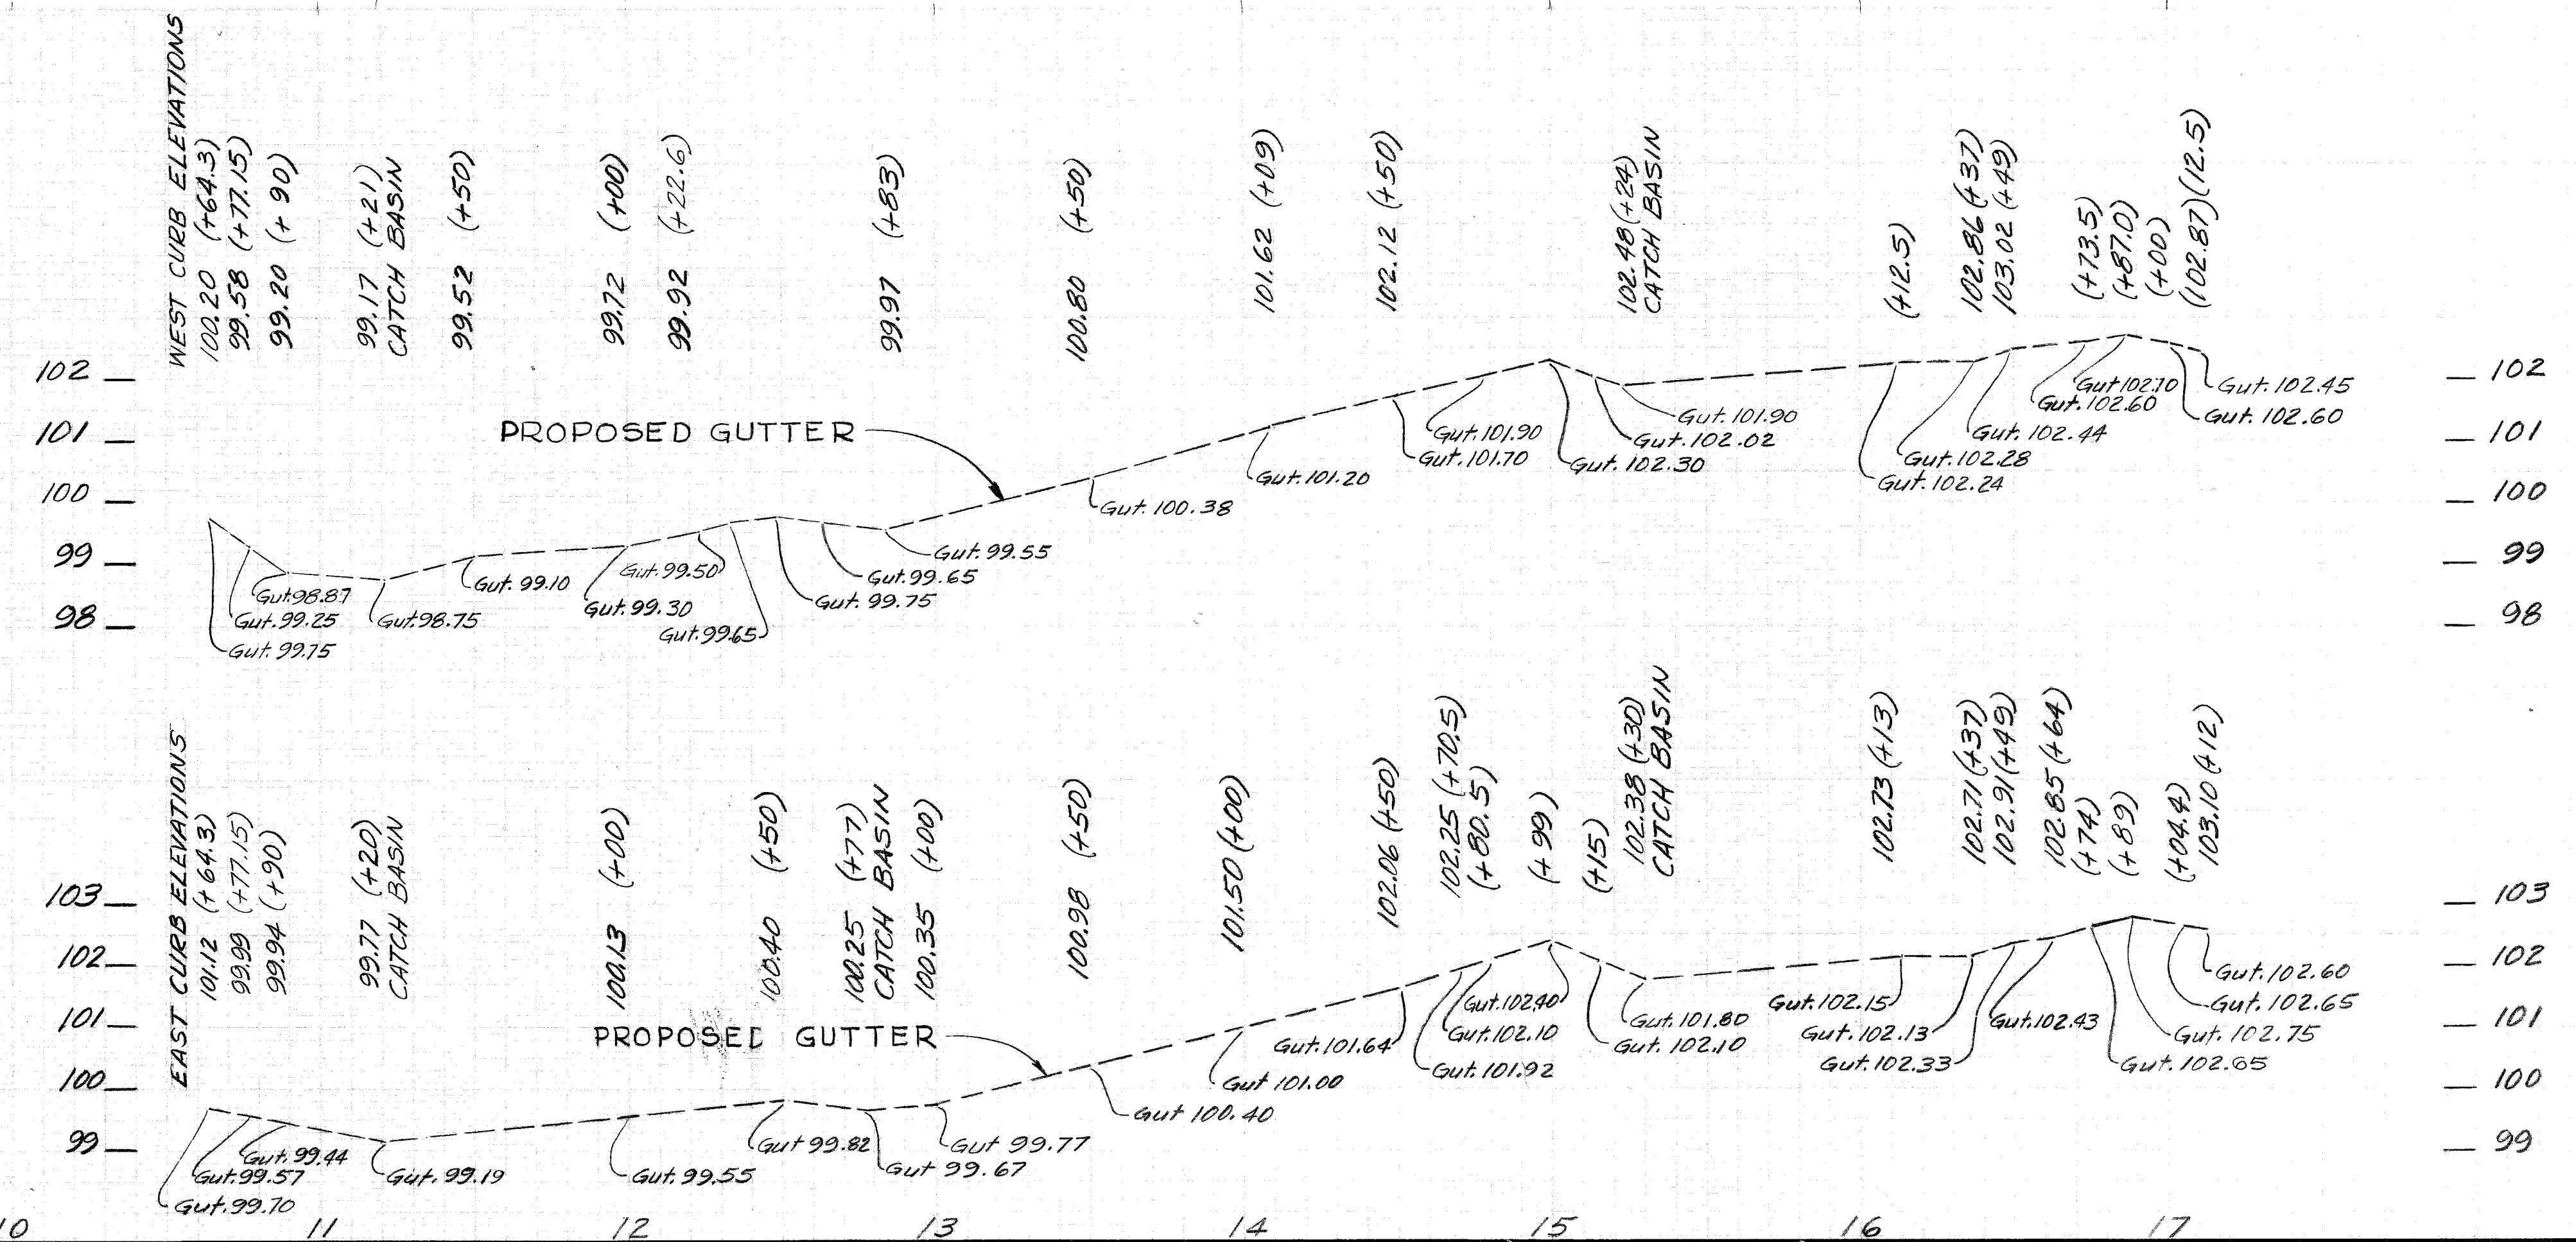 WEST CURB ELEVATIONS
100.20 (+64.3)
99.58 (+77.15)
99.20 (+90)
99.17 (+21)
CATCH BASIN
99.52 (+50)
99.72 (+00)
99.92 (+22.6)
99.97 (+83)
100.80 (+50)
101.62 (+09)
102.12 (+50)
102.48 (+24)
CATCH BASIN
(+12.5)
102.86 (+37)
103.02 (+49)
(+73.5)
(+87.0)
(+00)
(102.87)(12.5)
102
101
100
99
98
PROPOSED GUTTER
Gut.98.87
Gut.99.25
Gut.99.75
Gut.98.75
Gut.99.10
Gut.99.30
Gut.99.50
Gut.99.65
Gut.99.75
Gut.99.65
Gut.99.55
Gut.100.38
Gut.101.20
Gut.101.90
Gut.101.70
Gut.101.90
Gut.102.02
Gut.102.30
Gut.102.44
Gut.102.28
Gut.102.24
Gut.102.70
Gut.102.60
Gut.102.45
Gut.102.60
102
101
100
99
98
EAST CURB ELEVATIONS
101.12 (+64.3)
99.99 (+77.15)
99.94 (+90)
99.77 (+20)
CATCH BASIN
100.13 (+00)
100.40 (+50)
100.25 (+77)
CATCH BASIN
100.35 (+00)
100.98 (+50)
101.50 (+00)
102.06 (+50)
102.25 (+70.5)
(+80.5)
(+99)
(+15)
102.38 (+30)
CATCH BASIN
102.73 (+13)
102.71 (+37)
102.91 (+49)
102.85 (+64)
(+74)
(+89)
(+04.4)
103.10 (+12)
103
102
101
100
99
PROPOSED GUTTER
Gut.99.44
Gut.99.57
Gut.99.70
Gut.99.19
Gut.99.55
Gut 99.82
Gut 99.67
Gut 99.77
Gut 100.40
Gut 101.00
Gut.101.64
Gut.102.40
Gut.102.10
Gut.101.92
Gut.101.80
Gut.102.10
Gut.102.15
Gut.102.13
Gut.102.33
Gut.102.43
Gut.102.60
Gut.102.65
Gut.102.75
Gut.102.65
103
102
101
100
99
10 11 12 13 14 15 16 17